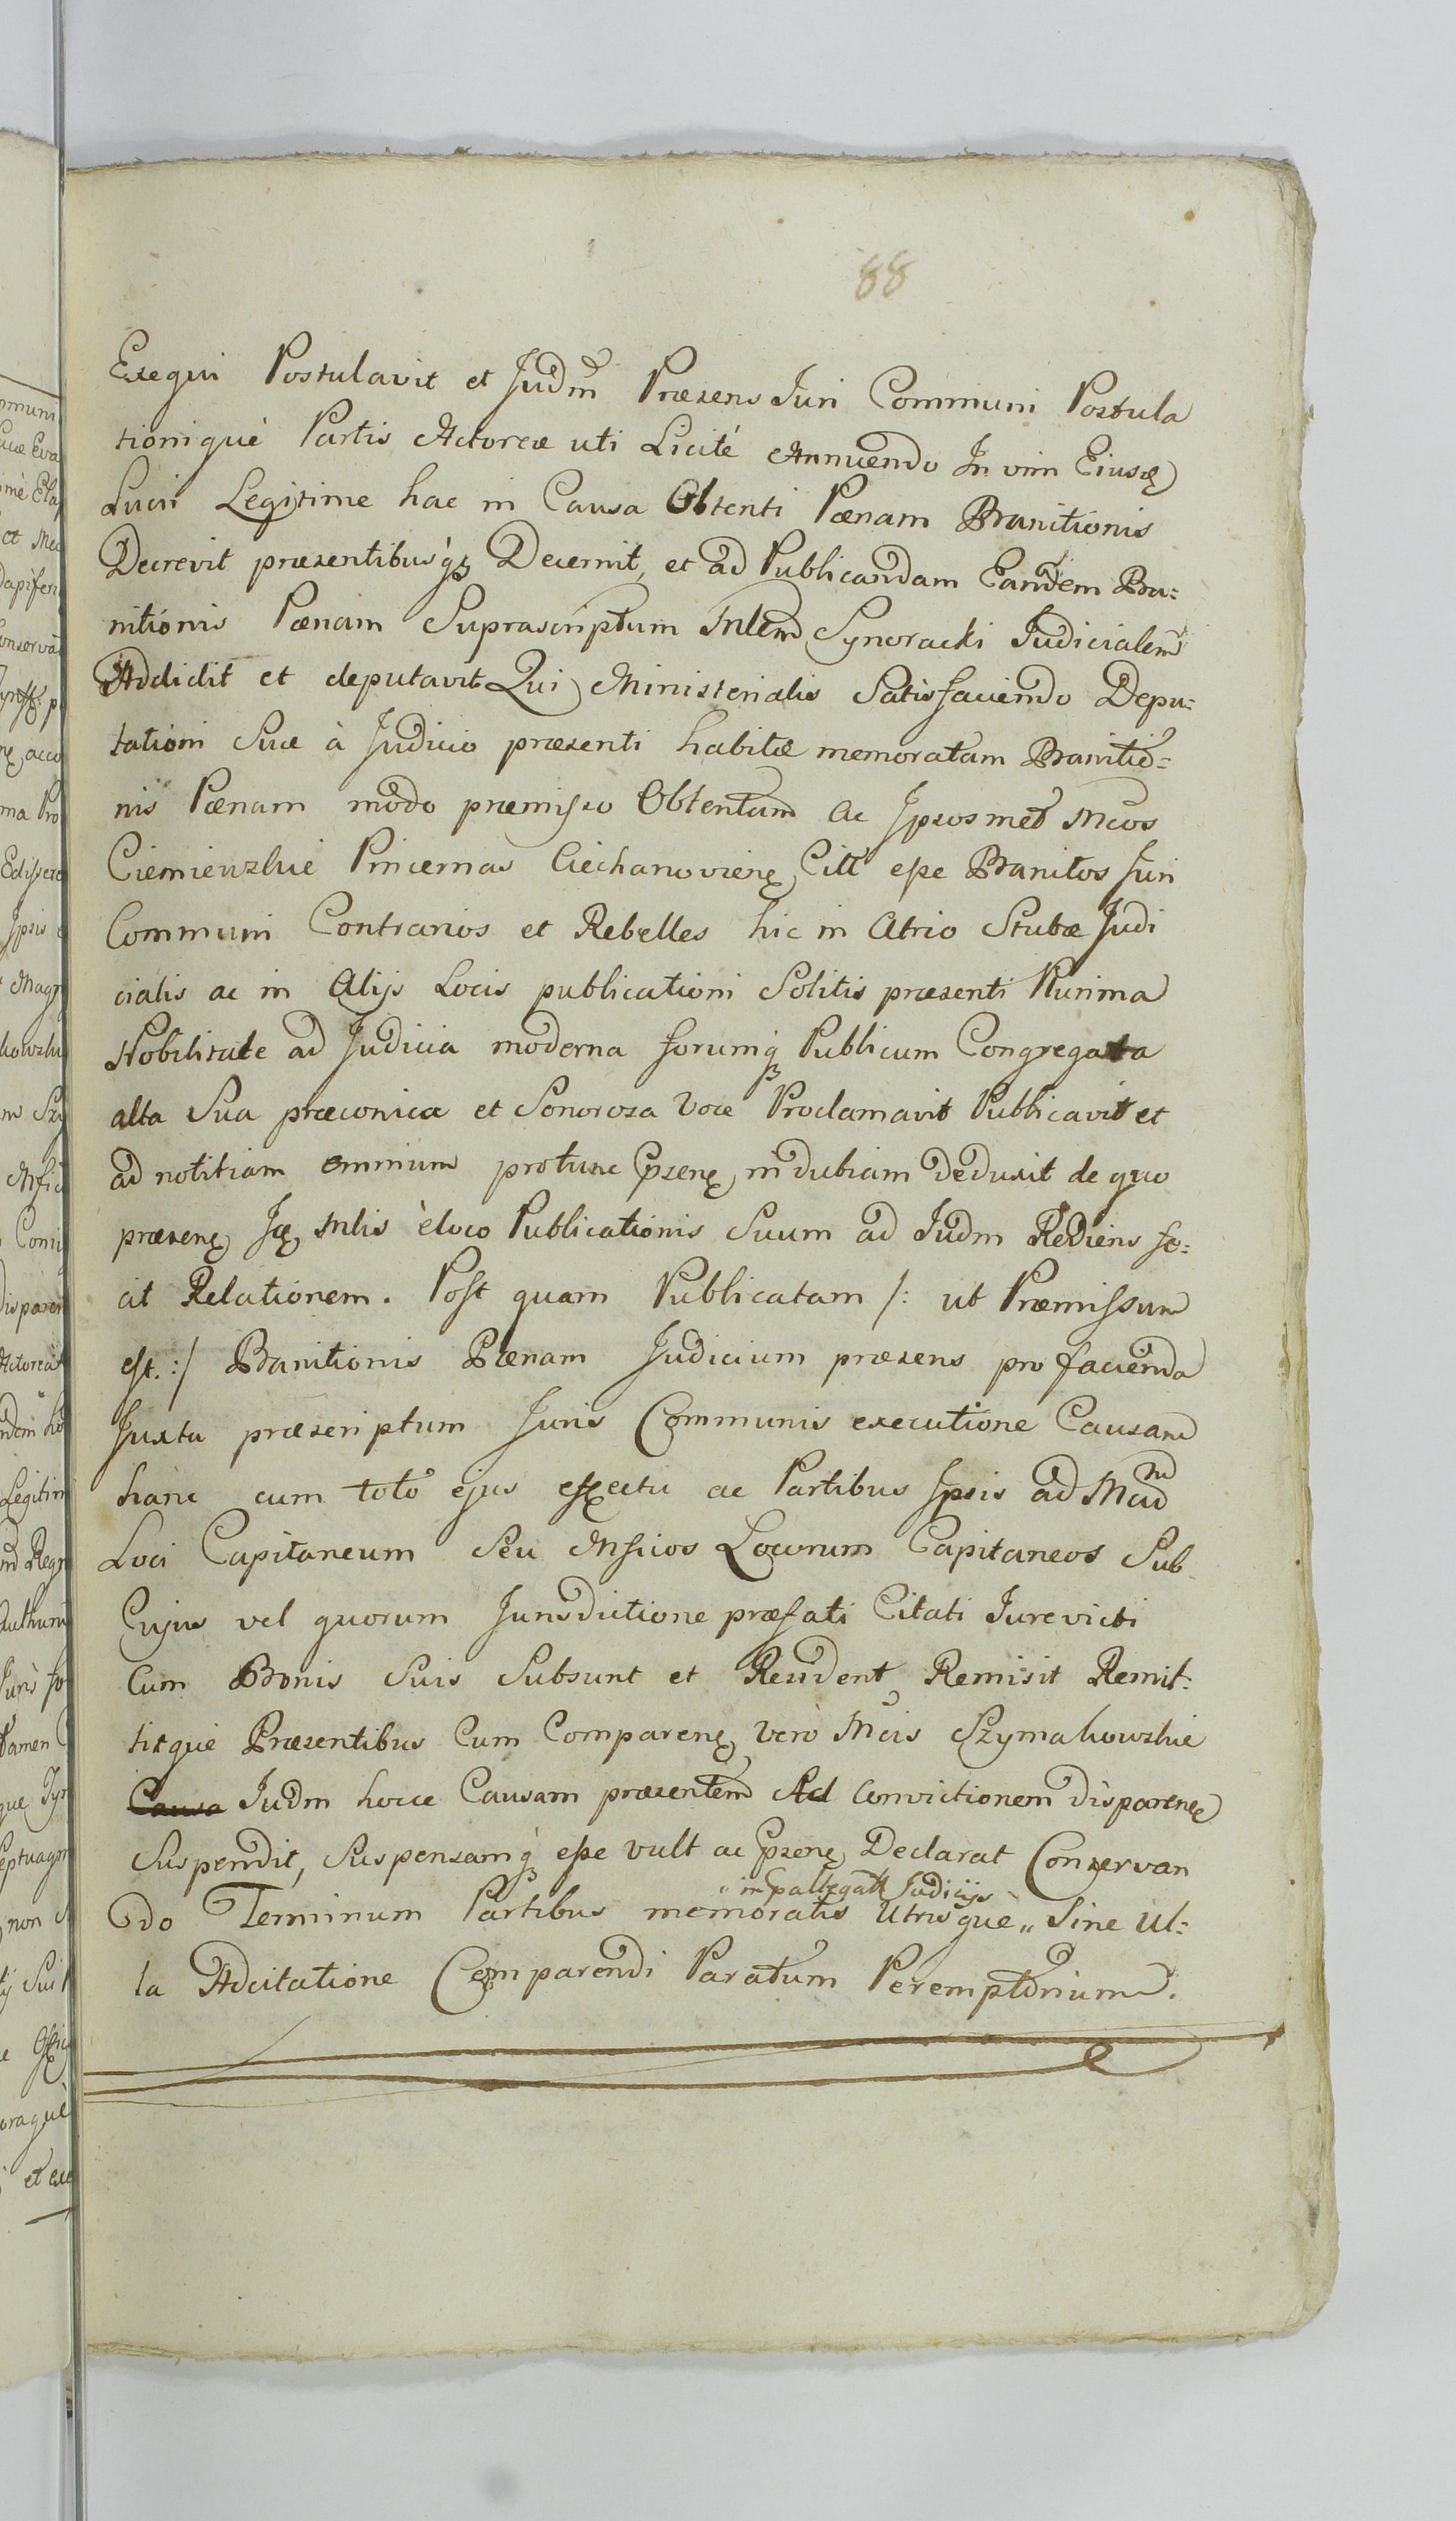 88
Exequi Postulavit et Judm Præsens Juri Communi Postula
tionique Partis Actoreæ uti Licitè Annuendo In vim Ejusd
Lucri Legitime hac in Causa Obtenti Pœnam Banitionis
Decrevit præsentibusq; Decernit, et ad Publicandam Eandem Ba-
nitionis Pœnam Suprascriptum Mlem Synoracki Judicialem
Addidit et deputavit Qui Ministerialis Satisfaciendo Depu-
tationi Suæ à Judicio præsenti habitæ memoratam Banitio-
nis Pœnam modo præmisso Obtentam ac Ipsosmet Mcos
Ciemiewskie Pincernas Ciechanovien Citt esse Banitos Juri
Communi Contrarios et Rebelles hic in Atrio Stubæ Judi
cialis ac in Alijs Locis publicationi Solitis præsenti Plurima
Nobilitate ad Judicia moderna forumq; Publicum Congregata
alta Sua præconica et Sonorosa Voce Proclamavit Publicavit et
ad notitiam omnium protunc Præn indubiam deduxit de quo
præsen Id Mlis èloco Publicationis Suum ad Judm Rediens fe-
cit Relationem. Post quam Publicatam /: ut Præmissum
est. :/ Banitionis Pœnam Judicium præsens pro facienda
Juxta præscriptum Juris Communis executione Causam
hanc cum toto ejus effectu ac Partibus Ipsis ad Mcum
Loci Capitaneum Seu Mficos Locorum Capitaneos Sub
Cujus vel quorum Jurisdictione præfati Citati Jurevicti
Cum Bonis Suis Subsunt et Resident Remisit Remit-
titque Præsentibus Cum Comparen vero Mcis Szymakowskie
Causa Judm hocce Causam præsentem Ad Convictionem disparen
Suspendit, Suspensamq; esse vult ac Præsen Declarat Conservan
do Terminum Partibus memoratis Utrisque „ Sine Ul-
„ in pallegatt Judicijs
la Adcitatione Comparendi Paratum Peremptorium.